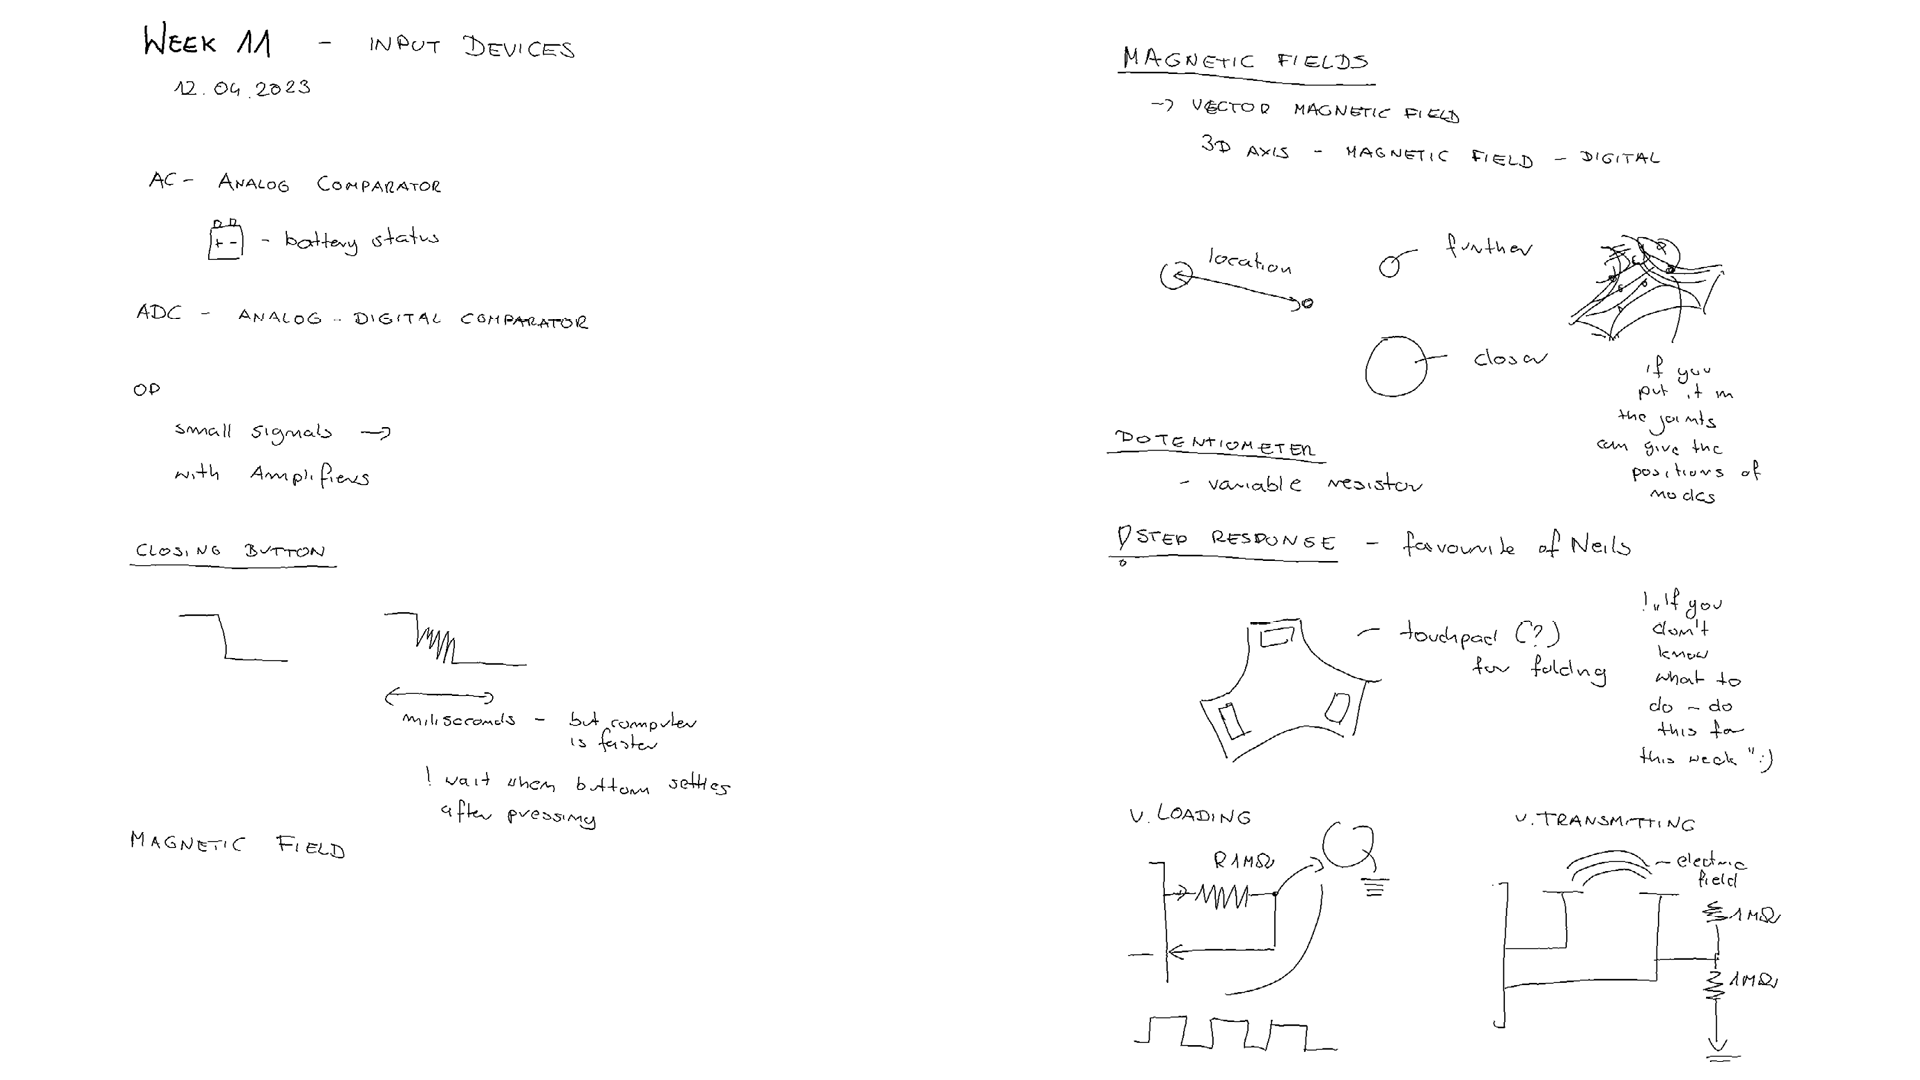 WEEK 11 - INPUT DEVICES
12.04.2023
AC - ANALOG COMPARATOR
+ - - battery status
ADC - ANALOG - DIGITAL COMPARATOR
OP
small signals →
with Amplifiers
CLOSING BUTTON
miliseconds - but computer
is faster
! wait when buttom settles
after pressing
MAGNETIC FIELD
MAGNETIC FIELDS
→ VECTOR MAGNETIC FIELD
3D AXIS - MAGNETIC FIELD - DIGITAL
location
further
closer
if you
put it in
the joints
can give the
positions of
nodes
POTENTIOMETER
- variable resistor
! STEP RESPONSE - favourite of Neils
touchpad (?)
for folding
! „If you
don't
know
what to
do - do
this for
this week" :)
v. LOADING
R 1MΩ
v. TRANSMITTING
electric
field
1MΩ
1MΩ